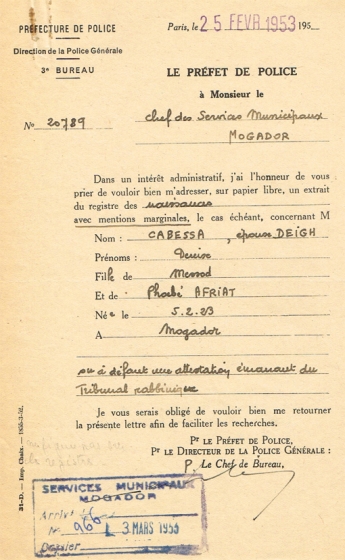 PRÉFECTURE DE POLICE
Paris, le 25 FEVR 1953 195
Direction de la Police Générale
3e BUREAU
LE PRÉFET DE POLICE
à Monsieur le
Chef des Services Municipaux
MOGADOR
No 20789
Dans un intérêt administratif, j'ai l'honneur de vous
prier de vouloir bien m'adresser, sur papier libre, un extrait
du registre des naissances
avec mentions marginales, le cas échéant, concernant M
Nom : CABESSA, épouse DEIGH
Prénoms : Denise
Fille de Messod
Et de : Phoebé AFRIAT
Née le 5.2.23
A Mogador
ou à défaut une attestation émanant du
Tribunal rabbinique
Je vous serais obligé de vouloir bien me retourner
la présente lettre afin de faciliter les recherches.
Pr LE PRÉFET DE POLICE,
Pr LE DIRECTEUR DE LA POLICE GÉNÉRALE :
P. Le Chef de Bureau,
SERVICES MUNICIPAUX
MOGADOR
Arrivé
No 966 3 MARS 1953
Dossier